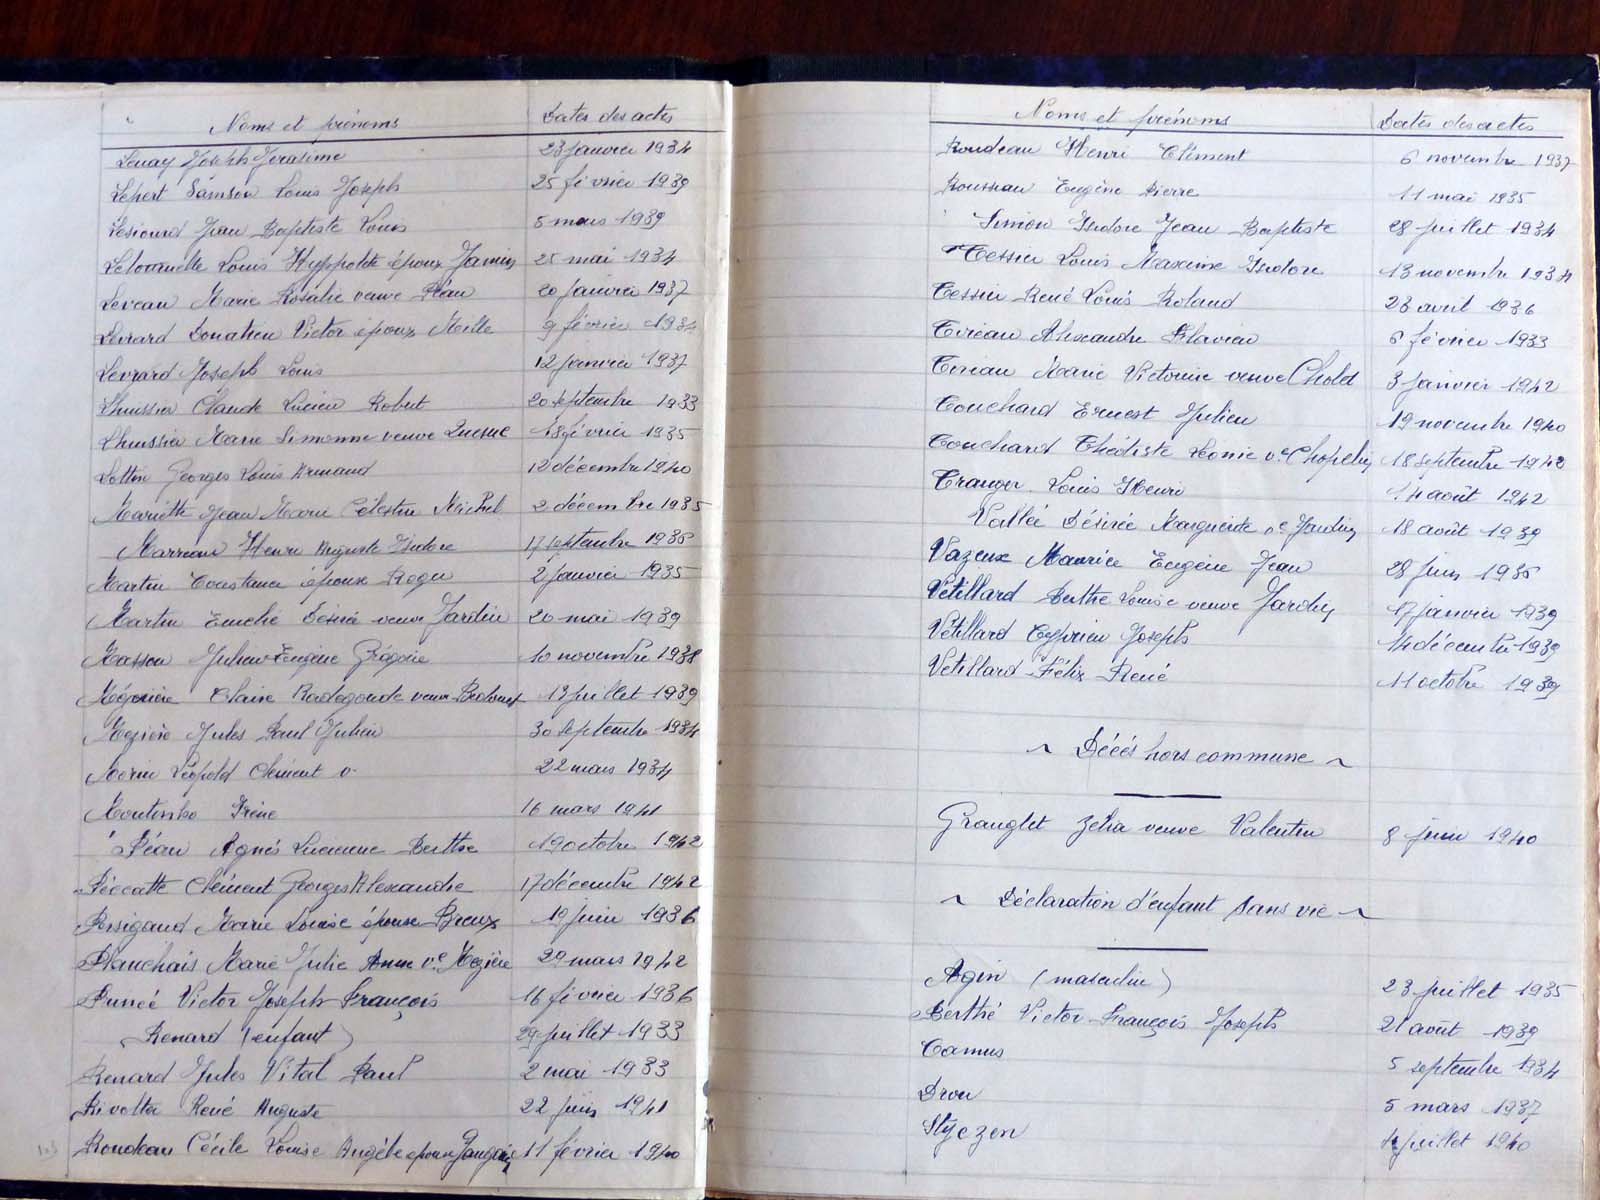 Noms et prénoms Dates des actes
Lenay Joseph Jérasime 23 janvier 1934
Lepert Samson Louis Joseph 25 février 1939
Lesiourd Jean Baptiste Louis 5 mars 1939
Letournelle Louis Hyppolite époux Jamin 25 mai 1934
Leveau Marie Rosalie veuve Péan 20 janvier 1937
Levrard Donatien Victor époux Meille 9 février 1934
Levrard Joseph Louis 12 janvier 1937
Lhuissier Claude Lucien Robert 20 septembre 1933
Lhuissier Marie Simonne veuve 18 février 1935
Lottin Georges Louis Armand 12 décembre 1940
Mariette Jean Marie Célestin Michel 2 décembre 1935
Marreau Henri Auguste Isidore 17 septembre 1936
Martin Constance épouse Roger 2 janvier 1935
Martin Désiré veuve Jardin 20 mai 1939
Masson Julien Eugène Grégoire 10 novembre 1938
Claire Radegonde veuve 13 juillet 1939
Mezière Jules Paul Julien 30 septembre 1934
Morin Léopold Clément 22 mars 1934
Irène 16 mars 1941
Péan Agnès Lucienne Berthe 19 octobre 1942
Péccatte Clément Georges Alexandre 17 décembre 1942
Persigand Marie Louise épouse Breux 19 juin 1936
Planchais Marie Julie Anne ve Mezière 29 mars 1942
Victor Joseph François 16 février 1936
Renard (enfant) 29 juillet 1933
Renard Jules Vital Paul 2 mai 1933
Rivolta René Auguste 22 juin 1941
Rondeau Cécile Louise Angèle épouse 11 février 1940
Noms et prénoms Dates des actes
Rondeau Henri Clément 6 novembre 1937
Rousseau Eugène Pierre 11 mai 1935
Simon Isidore Jean Baptiste 28 juillet 1934
Tessier Louis Maxime Isidore 13 novembre 1934
Tessier René Louis Roland 23 avril 1936
Tireau Alexandre Flavien 6 février 1933
Tireau Marie Victorine veuve Chold 3 janvier 1942
Touchard Ernest Julien 19 novembre 1940
Touchard Théotiste Léonie ve 18 septembre 1942
Tranger Louis Henri 14 août 1942
Vallée Désirée Marguerite ve Jardin 18 août 1939
Vazeux Maurice Eugène Jean 28 juin 1936
Vétillard Berthe Louise veuve Jardin 17 janvier 1939
Vétillard Cyprien Joseph 14 décembre 1939
Vetillard Félix René 11 octobre 1939
~ Décés hors commune ~
Granglet Zélia veuve Valentin 8 juin 1940
~ Déclaration d'enfant sans vie ~
Agin (masculin) 23 juillet 1935
Berthé Victor François Joseph 21 août 1939
Camus 5 septembre 1934
Drou 5 mars 1937
Styczen juillet 1940